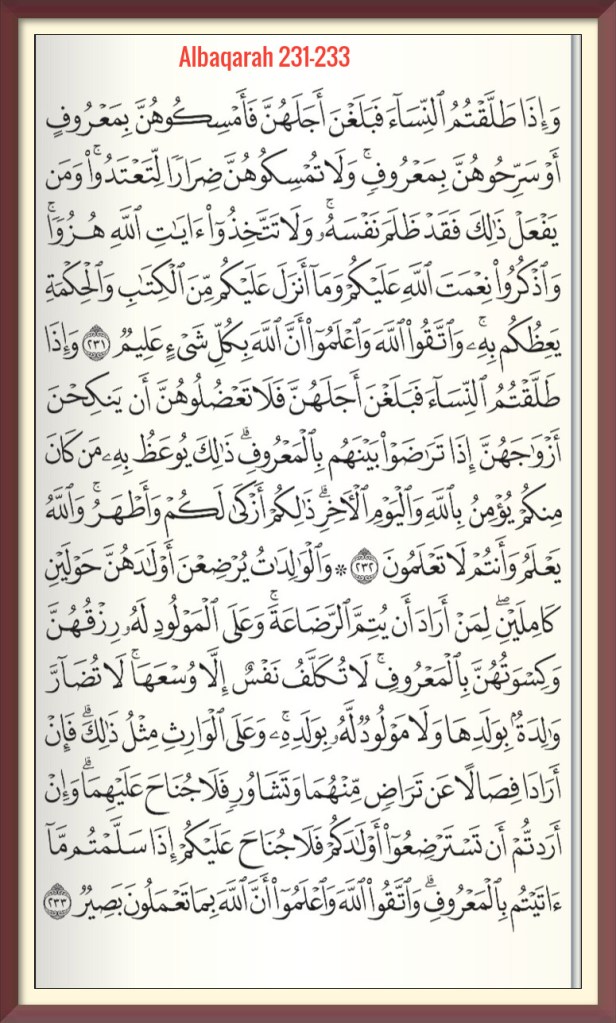 Albaqarah 231-233
وَإِذَا طَلَّقۡتُمُ ٱلنِّسَآءَ فَبَلَغۡنَ أَجَلَهُنَّ فَأَمۡسِكُوهُنَّ بِمَعۡرُوفٍ
أَوۡ سَرِّحُوهُنَّ بِمَعۡرُوفٖۚ وَلَا تُمۡسِكُوهُنَّ ضِرَارٗا لِّتَعۡتَدُواْۚ وَمَن
يَفۡعَلۡ ذَٰلِكَ فَقَدۡ ظَلَمَ نَفۡسَهُۥۚ وَلَا تَتَّخِذُوٓاْ ءَايَٰتِ ٱللَّهِ هُزُوٗاۚ
وَٱذۡكُرُواْ نِعۡمَتَ ٱللَّهِ عَلَيۡكُمۡ وَمَآ أَنزَلَ عَلَيۡكُم مِّنَ ٱلۡكِتَٰبِ وَٱلۡحِكۡمَةِ
يَعِظُكُم بِهِۦۚ وَٱتَّقُواْ ٱللَّهَ وَٱعۡلَمُوٓاْ أَنَّ ٱللَّهَ بِكُلِّ شَيۡءٍ عَلِيمٞ ٢٣١ وَإِذَا
طَلَّقۡتُمُ ٱلنِّسَآءَ فَبَلَغۡنَ أَجَلَهُنَّ فَلَا تَعۡضُلُوهُنَّ أَن يَنكِحۡنَ
أَزۡوَٰجَهُنَّ إِذَا تَرَٰضَوۡاْ بَيۡنَهُم بِٱلۡمَعۡرُوفِۗ ذَٰلِكَ يُوعَظُ بِهِۦ مَن كَانَ
مِنكُمۡ يُؤۡمِنُ بِٱللَّهِ وَٱلۡيَوۡمِ ٱلۡأٓخِرِۗ ذَٰلِكُمۡ أَزۡكَىٰ لَكُمۡ وَأَطۡهَرُۚ وَٱللَّهُ
يَعۡلَمُ وَأَنتُمۡ لَا تَعۡلَمُونَ ٢٣٢ * وَٱلۡوَٰلِدَٰتُ يُرۡضِعۡنَ أَوۡلَٰدَهُنَّ حَوۡلَيۡنِ
كَامِلَيۡنِۖ لِمَنۡ أَرَادَ أَن يُتِمَّ ٱلرَّضَاعَةَۚ وَعَلَى ٱلۡمَوۡلُودِ لَهُۥ رِزۡقُهُنَّ
وَكِسۡوَتُهُنَّ بِٱلۡمَعۡرُوفِۚ لَا تُكَلَّفُ نَفۡسٌ إِلَّا وُسۡعَهَاۚ لَا تُضَآرَّ
وَٰلِدَةُۢ بِوَلَدِهَا وَلَا مَوۡلُودٞ لَّهُۥ بِوَلَدِهِۦۚ وَعَلَى ٱلۡوَارِثِ مِثۡلُ ذَٰلِكَۗ فَإِنۡ
أَرَادَا فِصَالًا عَن تَرَاضٖ مِّنۡهُمَا وَتَشَاوُرٖ فَلَا جُنَاحَ عَلَيۡهِمَاۗ وَإِنۡ
أَرَدتُّمۡ أَن تَسۡتَرۡضِعُوٓاْ أَوۡلَٰدَكُمۡ فَلَا جُنَاحَ عَلَيۡكُمۡ إِذَا سَلَّمۡتُم مَّآ
ءَاتَيۡتُم بِٱلۡمَعۡرُوفِۗ وَٱتَّقُواْ ٱللَّهَ وَٱعۡلَمُوٓاْ أَنَّ ٱللَّهَ بِمَا تَعۡمَلُونَ بَصِيرٞ ٢٣٣